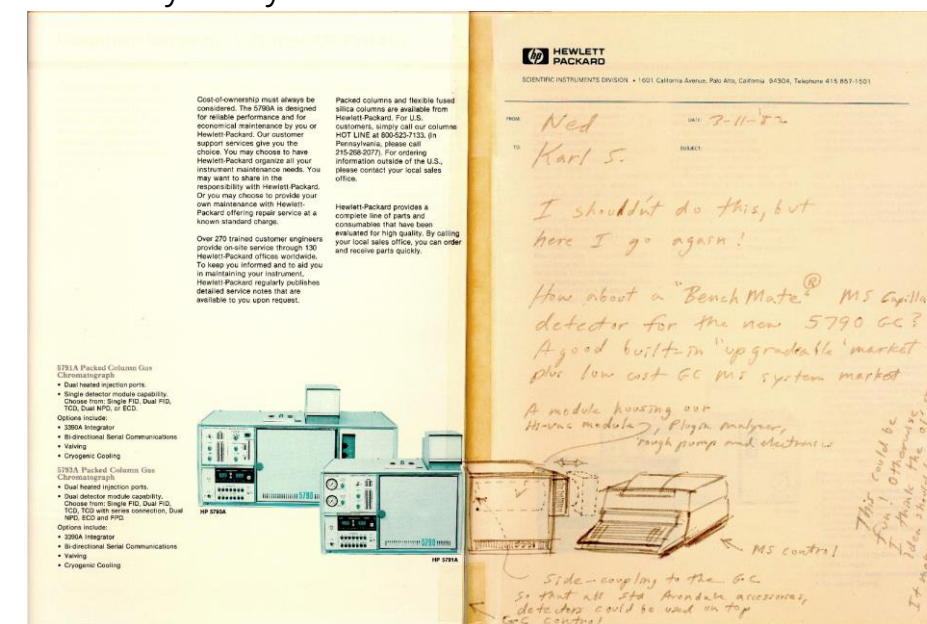 Cost-of-ownership must always be
considered. The 5790A is designed
for reliable performance and for
economical maintenance by you or
Hewlett-Packard. Our customer
support services give you the
choice. You may choose to have
Hewlett-Packard organize all your
instrument maintenance needs. You
may want to share in the
responsibility with Hewlett-Packard.
Or you may choose to provide your
own maintenance with Hewlett-
Packard offering repair service at a
known standard charge.
Over 270 trained customer engineers
provide on-site service through 130
Hewlett-Packard offices worldwide.
To keep you informed and to aid you
in maintaining your instrument,
Hewlett-Packard regularly publishes
detailed service notes that are
available to you upon request.
Packed columns and flexible fused
silica columns are available from
Hewlett-Packard. For U.S.
customers, simply call our columns
HOT LINE at 800-523-7133. (In
Pennsylvania, please call
215-268-2077). For ordering
information outside of the U.S.,
please contact your local sales
office.
Hewlett-Packard provides a
complete line of parts and
consumables that have been
evaluated for high quality. By calling
your local sales office, you can order
and receive parts quickly.
5791A Packed Column Gas
Chromatograph
• Dual heated injection ports.
• Single detector module capability.
Choose from: Single FID, Dual FID,
TCD, Dual NPD, or ECD.
Options include:
• 3390A Integrator
• Bi-directional Serial Communications
• Valving
• Cryogenic Cooling
5793A Packed Column Gas
Chromatograph
• Dual heated injection ports.
• Dual detector module capability.
Choose from: Single FID, Dual FID,
TCD, TCD with series connection, Dual
NPD, ECD and FPD.
Options include:
• 3390A Integrator
• Bi-directional Serial Communications
• Valving
• Cryogenic Cooling
5790
HP 5793A
5790
HP 5791A
hp HEWLETT
PACKARD
SCIENTIFIC INSTRUMENTS DIVISION • 1601 California Avenue, Palo Alto, California 94304, Telephone 415 857-1501
FROM: Ned DATE: 3-11-'82
TO: Karl S. SUBJECT:
I shouldn't do this, but
here I go again!
How about a "BenchMate"® MS Capilla
detector for the new 5790 GC?
A good built-in "upgradeable" market
plus low cost GC MS system market
A module housing our
Hi-vac module, Plugin analyzer,
rough pump and electronics
MS control
Side-coupling to the GC
so that all std Avondale accessories,
detectors could be used on top
GC control
This could be
fun! Otherwise
I think the
idea